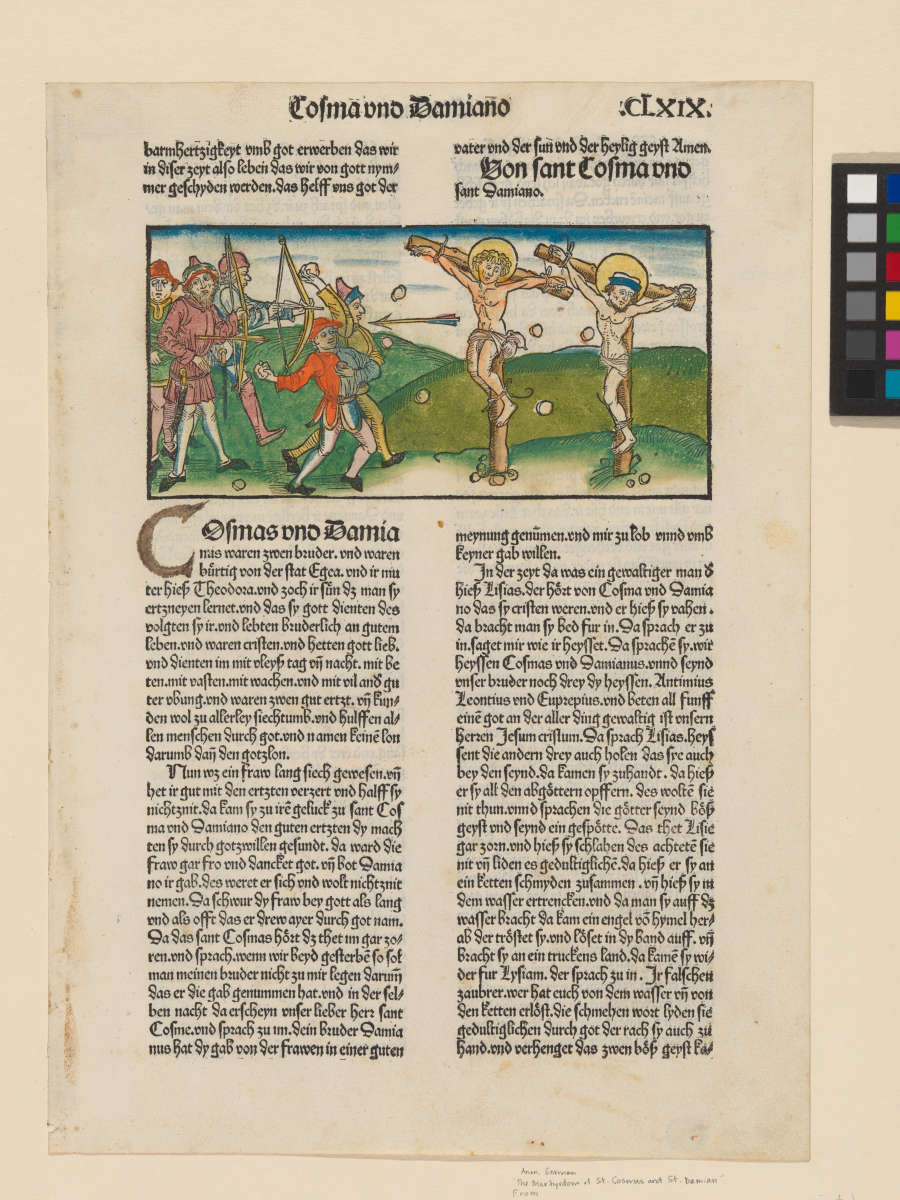 Cosma vnd Damiano
.CLXIX.
barmhertzigkeyt vmb got erwerben das wir
in diser zeyt also leben das wir von gott nym-
mer geschyden werden. das helff vns got der
vater vnd der sun vnd der heylig geyst Amen.
Von sant Cosma vnd
sant Damiano.
COsmas vnd Damia
nus waren zwen bruder. vnd waren
bürtig von der stat Egea. vnd ir mu
ter hieß Theodora. vnd zoch ir sün dz man sy
ertzneyen lernet. vnd das sy gott dienten des
volgten sy ir. vnd lebten bruderlich an gutem
leben. vnd waren cristen. vnd hetten gott lieb.
vnd dienten im mit vleyß tag vñ nacht. mit be
ten. mit vasten. mit wachen. vnd mit vil and̄ gu
ter vbung. vnd waren zwen gut ertzt. vñ kun-
den wol zu allerley siechtumb. vnd hulffen al-
len menschen durch got. vnd namen keinē lon
darumb dañ den gotzlon.
Nun wz ein fraw lang siech gewesen. vñ
het ir gut mit den ertzten verzert vnd halff sy
nichtznit. da kam sy zu irē geluck zu sant Cos
ma vnd Damiano den guten ertzten dy mach
ten sy durch gotzwillen gesundt. da ward die
fraw gar fro vnd dancket got. vñ bot Damia
no ir gab. des weret er sich vnd wolt nichtznit
nemen. Da schwur dy fraw bey gott als lang
vnd als offt das er drew ayer durch got nam.
Da das sant Cosmas hört dz thet im gar zo-
ren. vnd sprach. wenn wir beyd gesterbē so sol
man meinen bruder nicht zu mir legen darum̄
das er die gab genummen hat. vnd in der sel-
ben nacht da erscheyn vnser lieber herr sant
Cosme. vnd sprach zu im. dein bruder Damia
nus hat dy gab von der frawen in einer guten
meynung genūmen. vnd mir zu lob vnnd vmb
keyner gab willen.
In der zeyt da was ein gewaltiger man d̄
hieß Lisias. der hört von Cosma vnd Damia
no das sy cristen weren. vnd er hieß sy vahen.
da bracht man sy bed fur in. Da sprach er zu
in. saget mir wie ir heysset. Da sprachē sy. wir
heyssen Cosmas vnd Damianus. vnnd seynd
vnser bruder noch drey dy heyssen. Antimius
Leontius vnd Euprepius. vnd beten all funff
einē got an der aller ding gewaltig ist vnsern
herren Jesum cristum. Da sprach Lisias. heys
sent die andern drey auch holen das sye auch
bey den seynd. da kamen sy zuhandt. da hieß
er sy all den abgöttern opffern. des wolten sie
nit thun. vnnd sprachen die götter seynd böß
geyst vnd seynd ein gespötte. Das thet Lisie
gar zorn. vnd hieß sy schlahen des achtetē sie
nit vñ liden es gedultiglichē. da hieß er sy an
ein ketten schmyden zusammen. vñ hieß sy in
dem wasser ertrencken. vnd da man sy auff dz
wasser bracht da kam ein engel vō hymel her-
ab der tröstet sy. vnd löset in dy band auff. vñ
bracht sy an ein truckens land. da kamē sy wi-
der fur Lysiam. der sprach zu in. Ir falschen
zaubrer. wer hat euch von dem wasser vñ von
den ketten erlöst. die schmehen wort lyden sie
gedultiglichen durch got der rach sy auch zu
hand. vnd verhenget das zwen böß geyst ka-
Anon. German
The Martyrdom of St. Cosmus and St. Damian
From